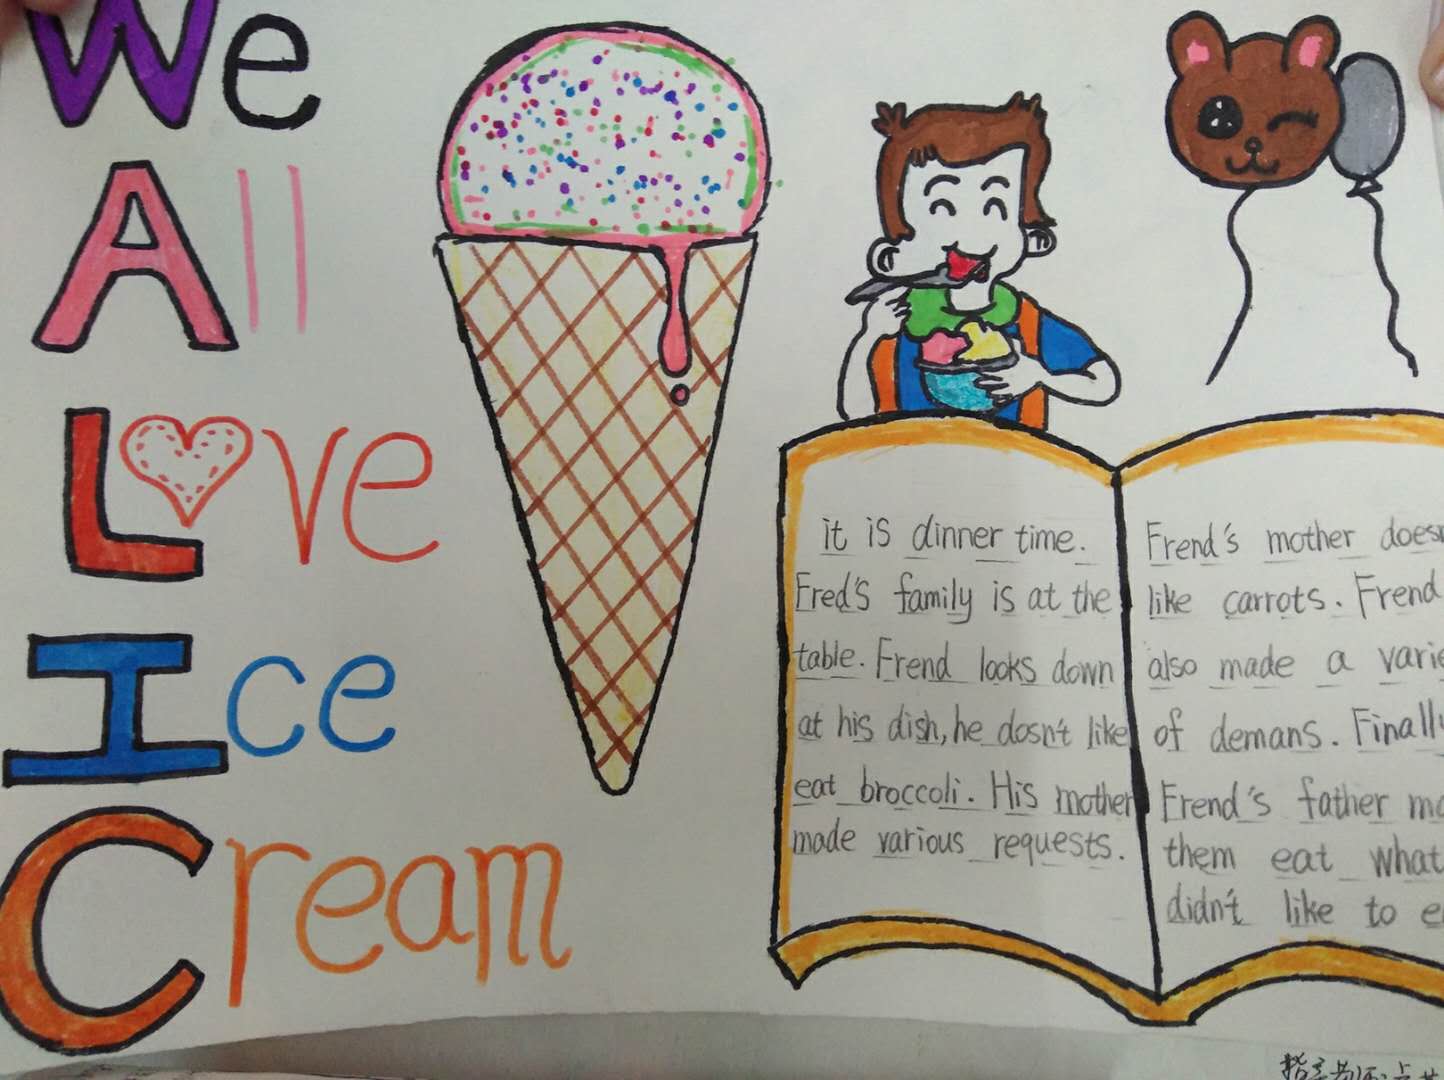 We
All
Love
Ice
Cream
it is dinner time.
Fred's family is at the
table. Frend looks down
at his dish, he dosn't like
eat broccoli. His mother
made various requests.
Frend's mother
like carrots. Frend
also made a
of demans. Finally
Frend's father
them eat what
didn't like to